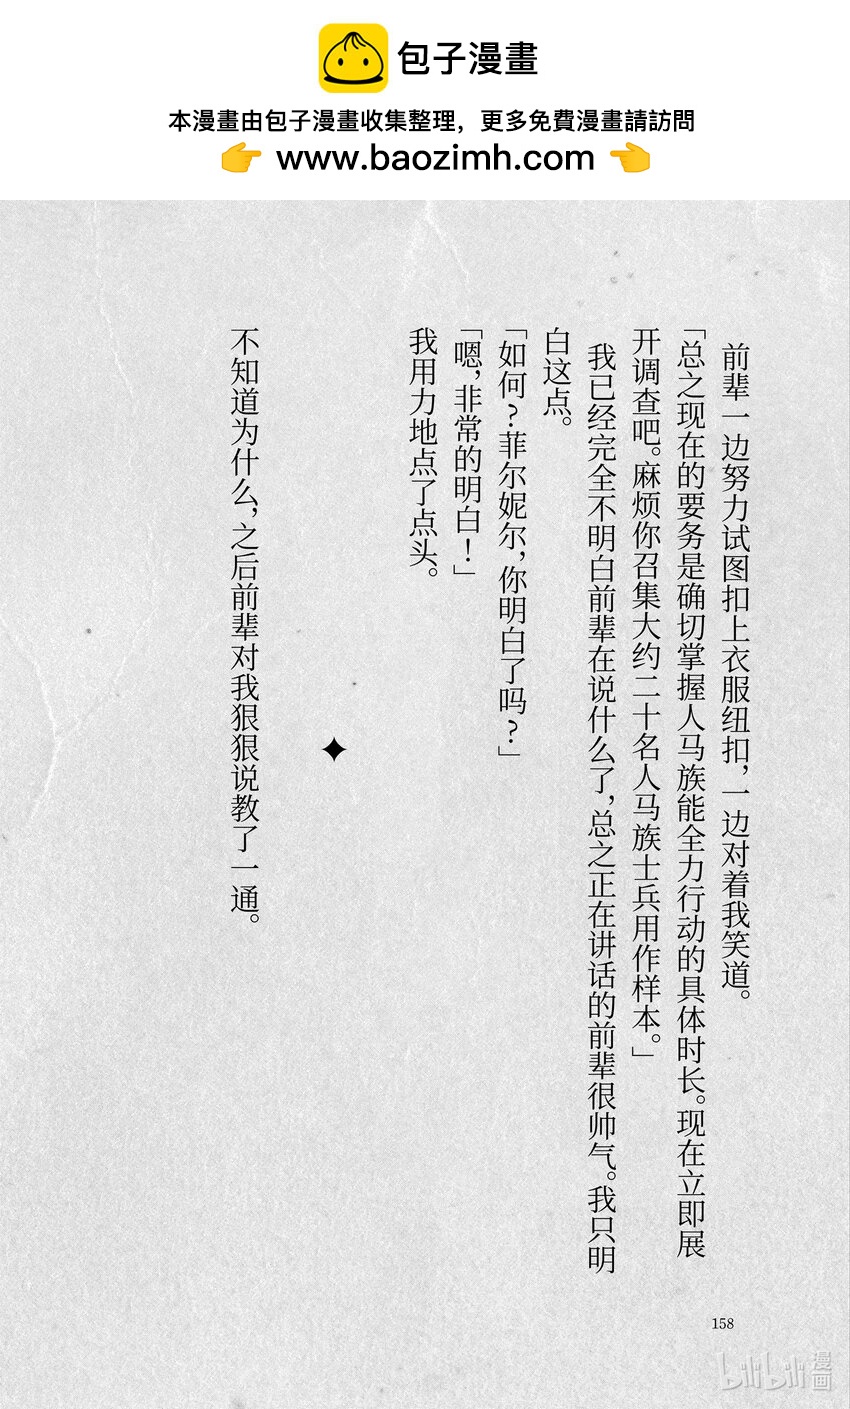 包子漫畫
本漫畫由包子漫畫收集整理，更多免費漫畫請訪問
👉 www.baozimh.com 👈
前辈一边努力试图扣上衣服纽扣，一边对着我笑道。
「总之现在的要务是确切掌握人马族能全力行动的具体时长。现在立即展
开调查吧。麻烦你召集大约二十名人马族士兵用作样本。」
我已经完全不明白前辈在说什么了，总之正在讲话的前辈很帅气。我只明
白这点。
「如何？菲尔妮尔，你明白了吗？」
「嗯，非常的明白！」
我用力地点了点头。
✦
不知道为什么，之后前辈对我狠狠说教了一通。
158
bilibili 漫画